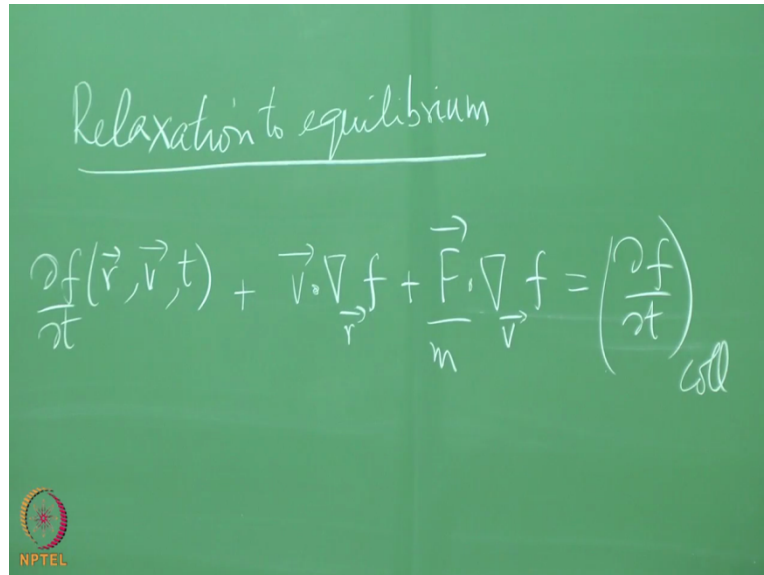 Relaxation to equilibrium
∂f/∂t (r⃗, v⃗, t) + v⃗·∇_r⃗ f + F⃗/m·∇_v⃗ f = (∂f/∂t)_coll
NPTEL